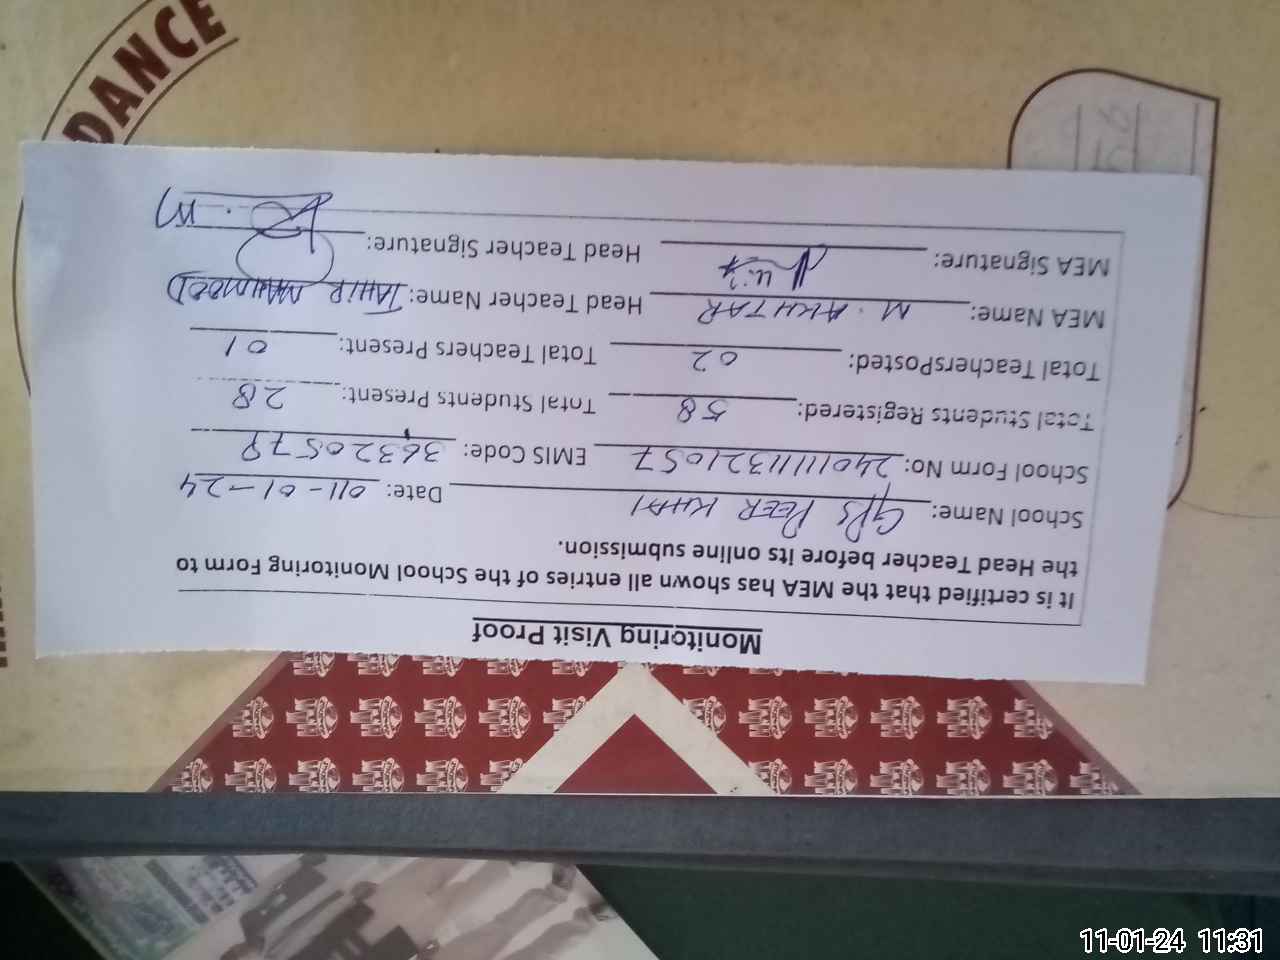 DANCE
Monitoring Visit Proof
It is certified that the MEA has shown all entries of the School Monitoring Form to
the Head Teacher before its online submission.
School Name: GPS PEER KHAI Date: 011-01-24
School Form No: 24011111321057 EMIS Code: 36320578
Total Students Registered: 58 Total Students Present: 28
Total TeachersPosted: 02 Total Teachers Present: 01
MEA Name: M. AKHTAR Head Teacher Name: TAHIR MAHMOOD
MEA Signature: Head Teacher Signature:
11-01-24 11:31